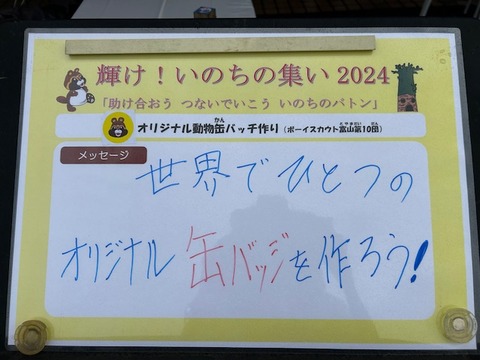 輝け！いのちの集い 2024
「助け合おう つないでいこう いのちのバトン」
オリジナル動物缶バッチ作り（ボーイスカウト富山第10団）
メッセージ
世界でひとつの
オリジナル缶バッジを作ろう！